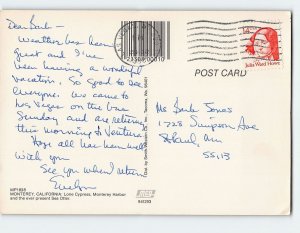 Dear Barb -
Weather has been
great and I've
been having a wonderful
vacation. So good to see
everyone. We came to
Las Vegas on the bus
Sunday and are returning
this morning to Ventura.
Hope all has been well
with you
See you when I return
Evelyn
MONTEREY, CALIFORNIA: Lone Cypress, Monterey Harbor
and the ever present Sea Otter.
POST CARD
14
Julia Ward Howe
Ms Barb Jones
1728 Simpson Ave
St Paul, Mn
55113